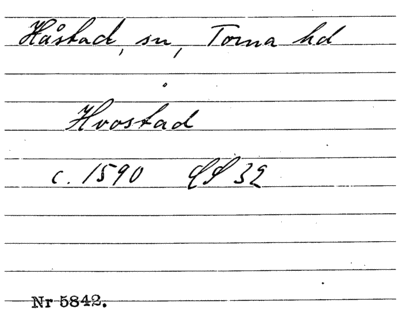 Håstad, sn, Torna hd
Hvostad
c. 1590 32
Nr 5842.